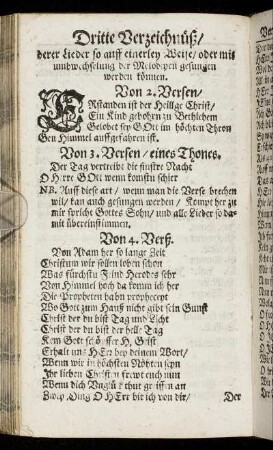 Dritte Verzeichnüß/
derer Lieder so auff einerley Weise/ oder mit
umbwechselung der Melodeyen gesungen
werden können.
Von 2. Versen/
ERstanden ist der Heilige Christ/
Ein Kind gebohrn zu Bethlehem
Gelobet sey GOtt im höchsten Thron
Gen Himmel auffgefahren ist.
Von 3. Versen/ eines Thones.
Der Tag vertreibt die finstre Nacht
O HErre GOtt wenn komstu schier
NB. Auff diese art/ wenn man die Verse brechen
wil/ kan auch gesungen werden/ Kompt her zu
mir spricht Gottes Sohn/ und alle Lieder so da-
mit übereinstimmen.
Von 4. Verß.
Von Adam her so lange Zeit
Christum wir sollen loben schon
Was fürchstu Feind Herodes sehr
Von Himmel hoch da komm ich her
Die Propheten habn propheceyt
Wo Gott zum Hauß nicht gibt sein Gunst
Christ der du bist Tag und Licht
Christ der du bist der helle Tag
Kom Gott schöpffer H. Geist
Erhalt uns HErr bey deinem Wort/
Wenn wir in höchsten Nöhten seyn
Ihr lieben Christen frewt euch nun
Wenn dich Unglück thut greiffen an
Zweŋ Ding O HErr bit ich von dir/
Der